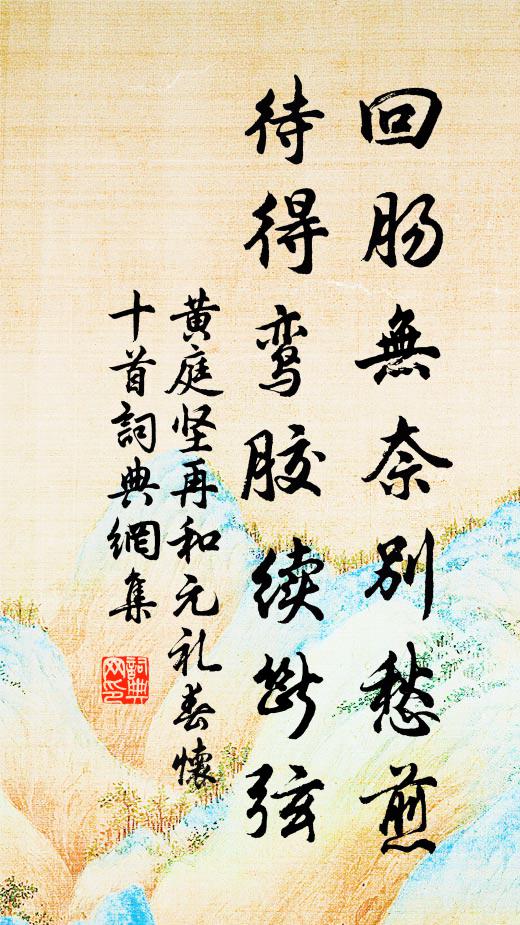 回肠無奈别愁煎
待得鸾胶续断弦
黄庭坚再和元礼春懷
十首詞典網集
詞典
网印